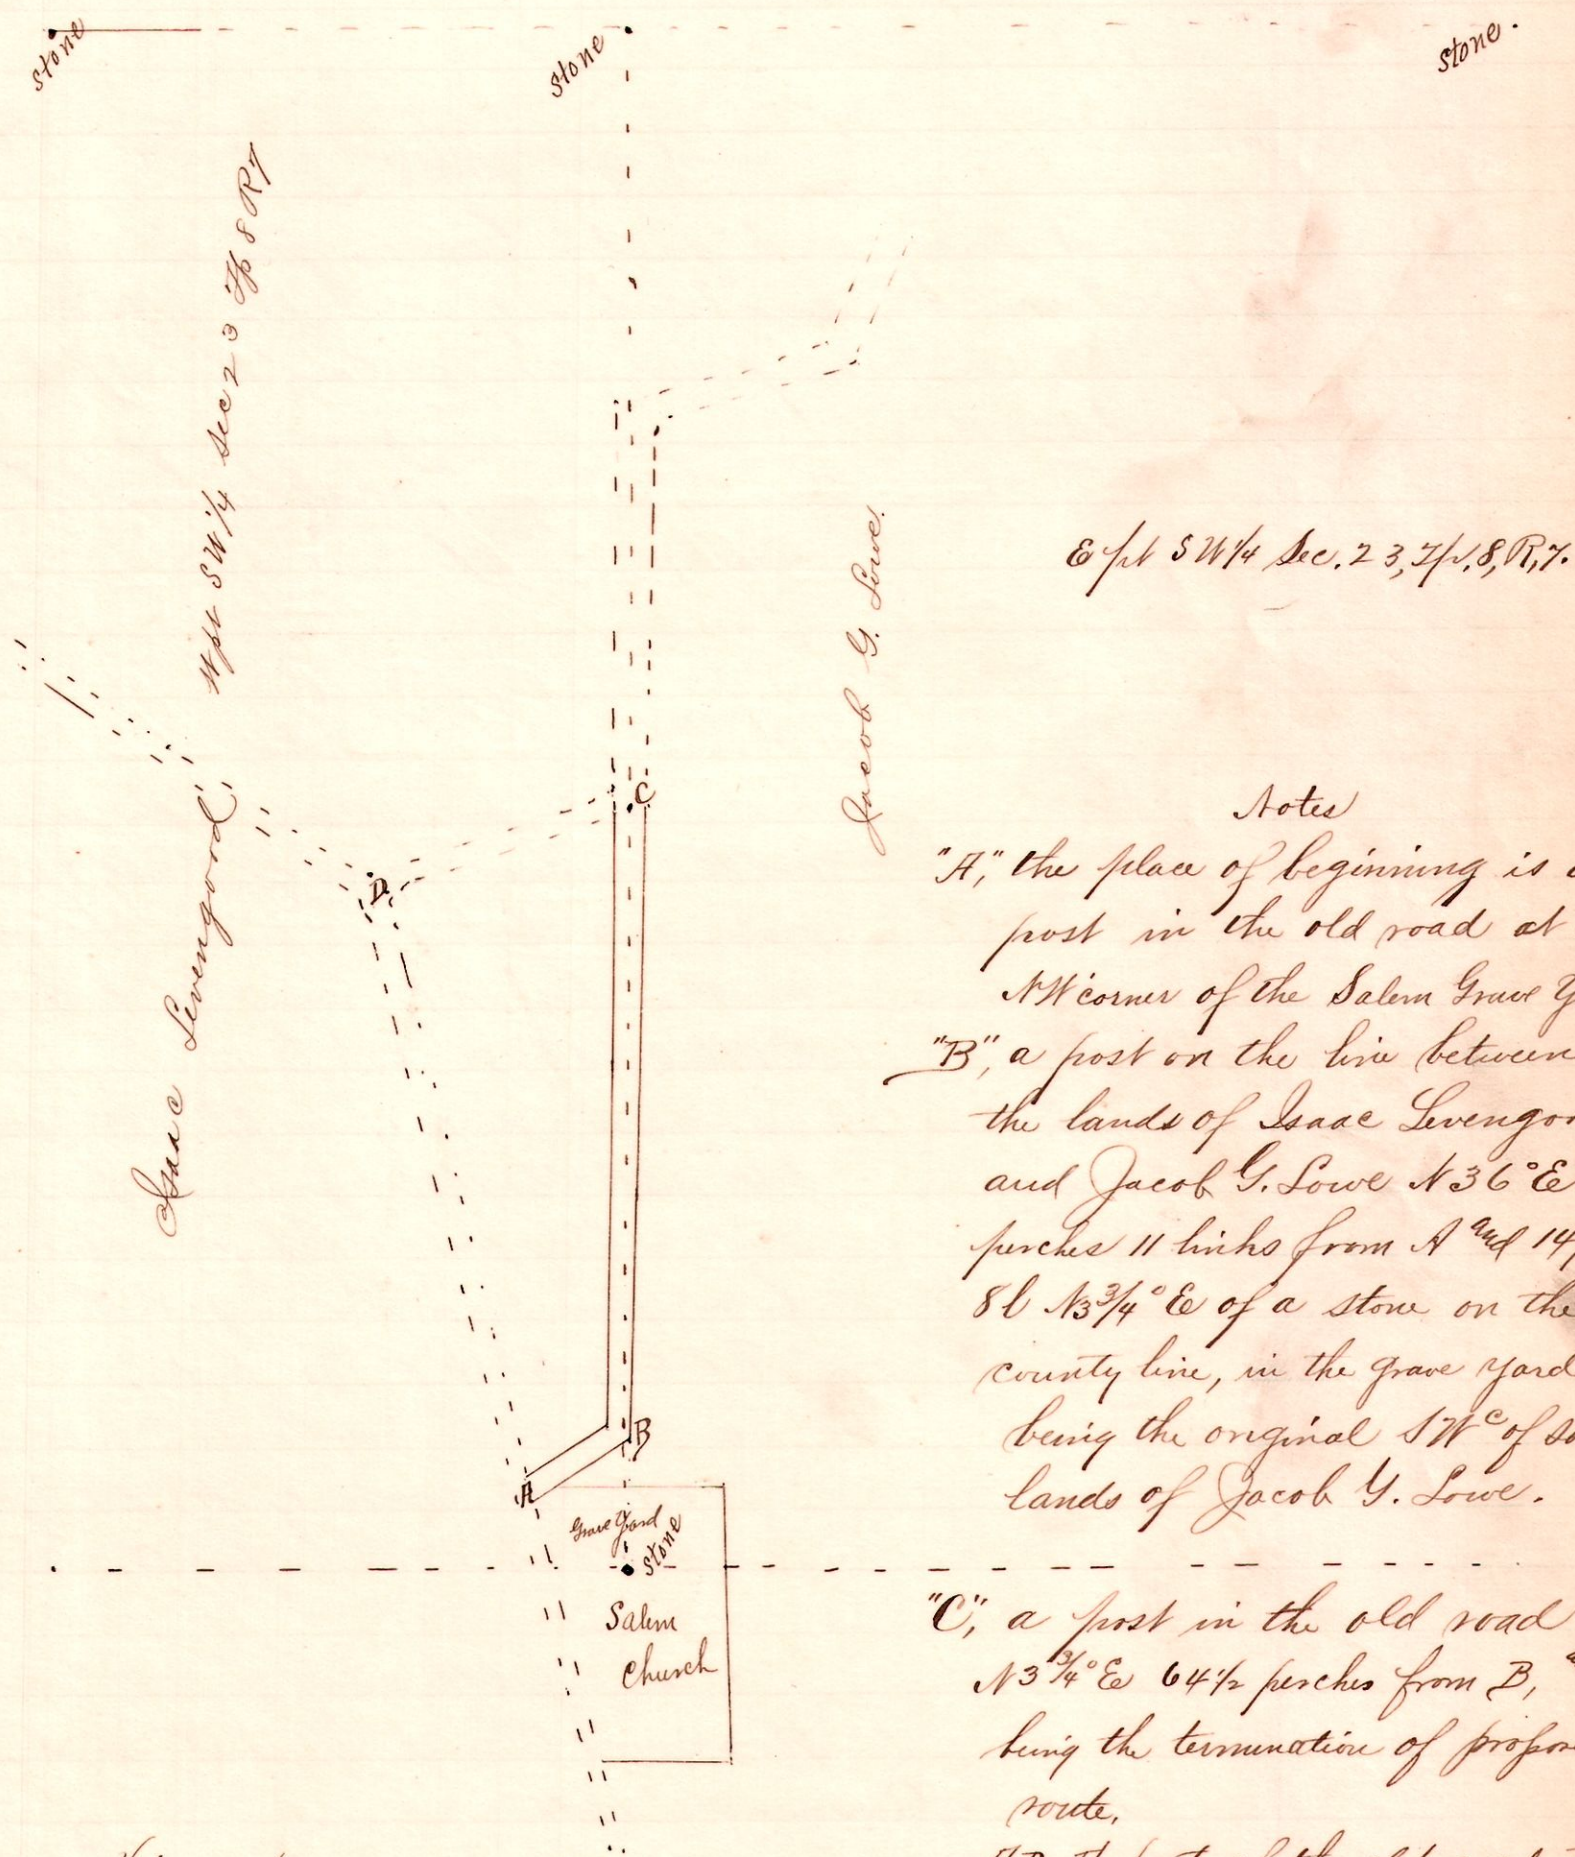 Stone
Stone
Stone.
W pt SW 1/4 Sec 23 Tp 8 R7
Isaac Levengood
Jacob G. Lowe.
E pt SW 1/4 Sec. 23, Tp. 8, R, 7.
C
D
B
A
Grave Yard
Stone
Salem
Church
Notes
"A," the place of beginning is
post in the old road at
NW corner of the Salem Grave Y
"B", a post on the line between
the lands of Isaac Levengoo
and Jacob G. Lowe N 36° E
perches 11 links from A and 14,
8 l N 3 3/4° E of a stone on the
county line, in the grave yard
being the original SWc of sa
lands of Jacob G. Lowe.
"C", a post in the old road
N 3 3/4° E 64 1/2 perches from B,
being the termination of propos
route.